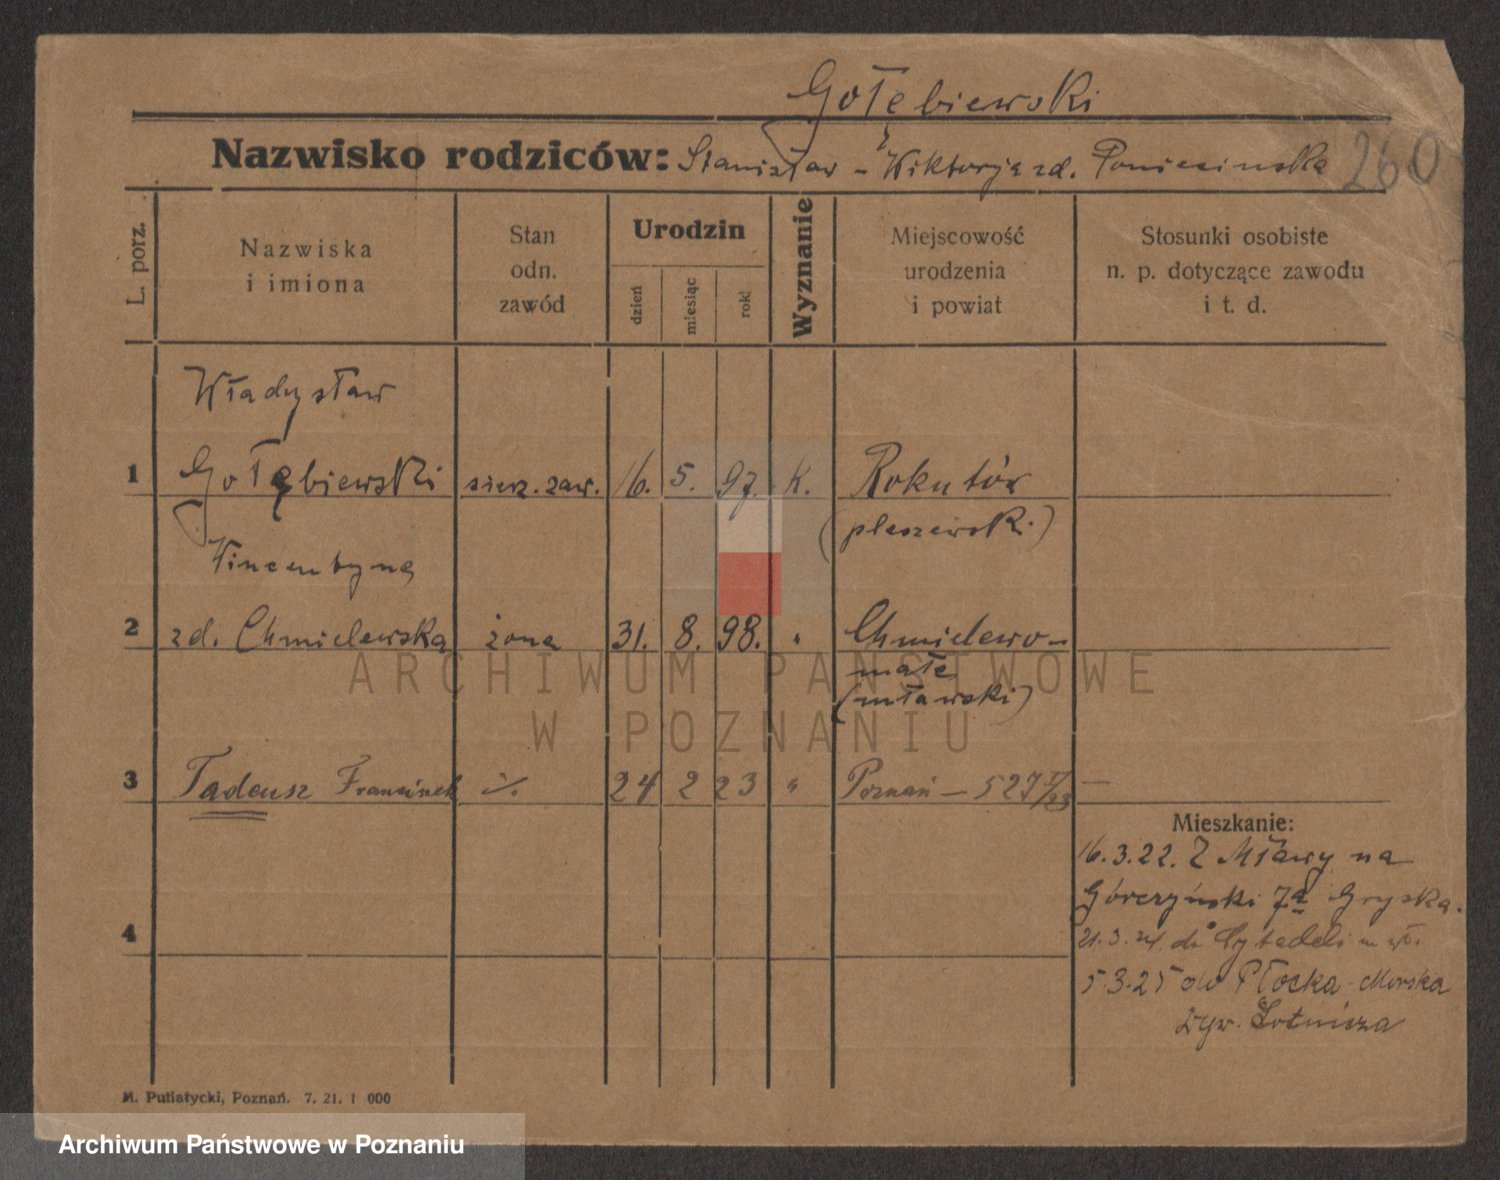 Gołębiewski
Nazwisko rodziców: Stanisław - Wiktorja zd. Poniecinska 260
L. porz.
Nazwiska
i imiona
Stan
odn.
zawód
Urodzin
dzień
miesiąc
rok
Wyznanie
Miejscowość
urodzenia
i powiat
Stosunki osobiste
n. p. dotyczące zawodu
i t. d.
Władysław
1 Gołębiewski sierz. zaw. 16. 5. 97. K. Rokutów
(pleszewski)
Wincentyna
2 zd. Chmielewska żona 31. 8. 98. " Chmielewo-
małe
(mławski)
3 Tadeusz Franciszek 24 2 23 " Poznań - 527 —
Mieszkanie:
16.3.22. Z Mławy na
Górczyński 7a Gryska.
4
21.3.24. do Cytadeli
5.3.25 do Płocka - Morska
Lotnicza
M. Putiatycki, Poznań. 7. 21. 1 000
ARCHIWUM PAŃSTWOWE
W POZNANIU
Archiwum Państwowe w Poznaniu